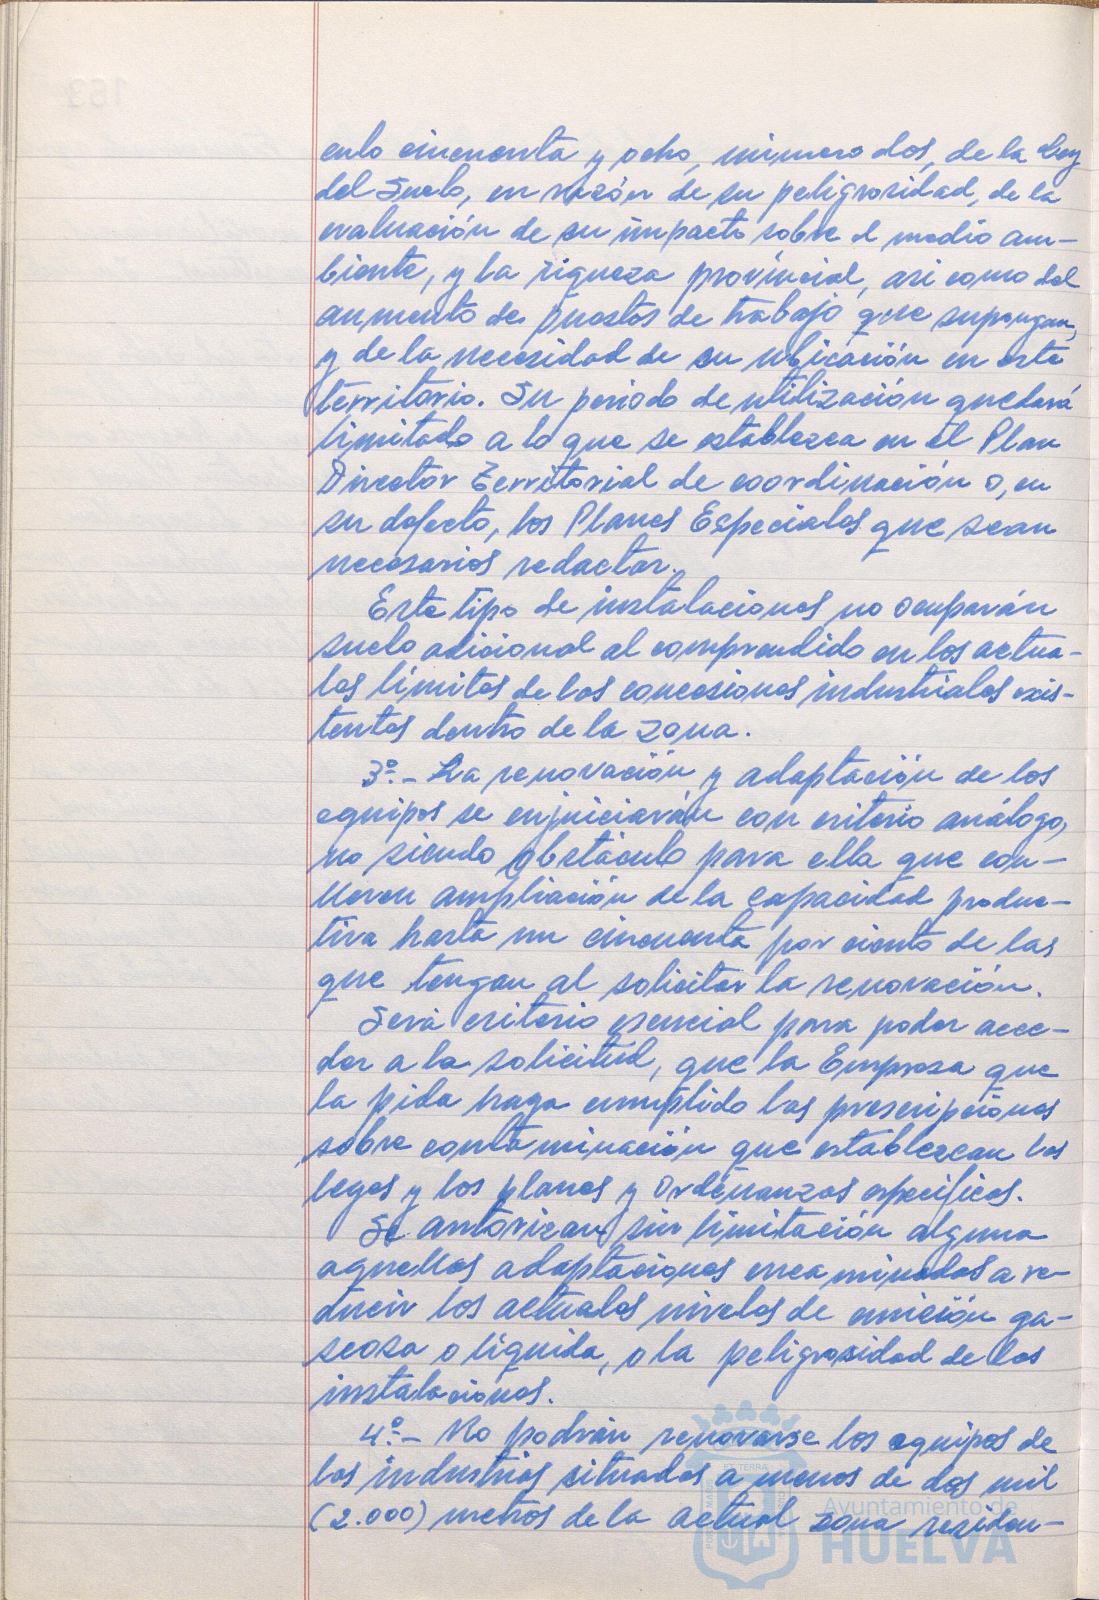 culo cincuenta y ocho, número dos, de la Ley
del Suelo, en razón de su peligrosidad, de la
evaluación de su impacto sobre el medio am-
biente, y la riqueza provincial, asi como del
aumento de puestos de trabajo que supongan,
y de la necesidad de su ubicación en este
territorio. Su periodo de utilización quedará
limitado a lo que se establezca en el Plan
Director Territorial de coordinación o, en
su defecto, los Planes Especiales que sean
necesarios redactar.
Este tipo de instalaciones no ocuparán
suelo adicional al comprendido en los actua-
les límites de las concesiones industriales exis-
tentes dentro de la zona.
3º.- La renovación y adaptación de los
equipos se enjuiciarán con criterio análogo,
no siendo obstáculo para ella que con-
lleven ampliación de la capacidad produc-
tiva hasta un cincuenta por ciento de las
que tengan al solicitar la renovación.
Será criterio esencial para poder acce-
der a la solicitud, que la Empresa que
la pida haga cumplido las prescripciones
sobre contaminación que establezcan las
leyes y los planes y Ordenanzas específicos.
Se autorizan sin limitación alguna
aquellas adaptaciones encaminadas a re-
ducir los actuales niveles de emisión ga-
seosa o líquida, o la peligrosidad de las
instalaciones.
4º.- No podrán renovarse los equipos de
las industrias situadas a menos de dos mil
(2.000) metros de la actual zona residen-
Ayuntamiento de
HUELVA